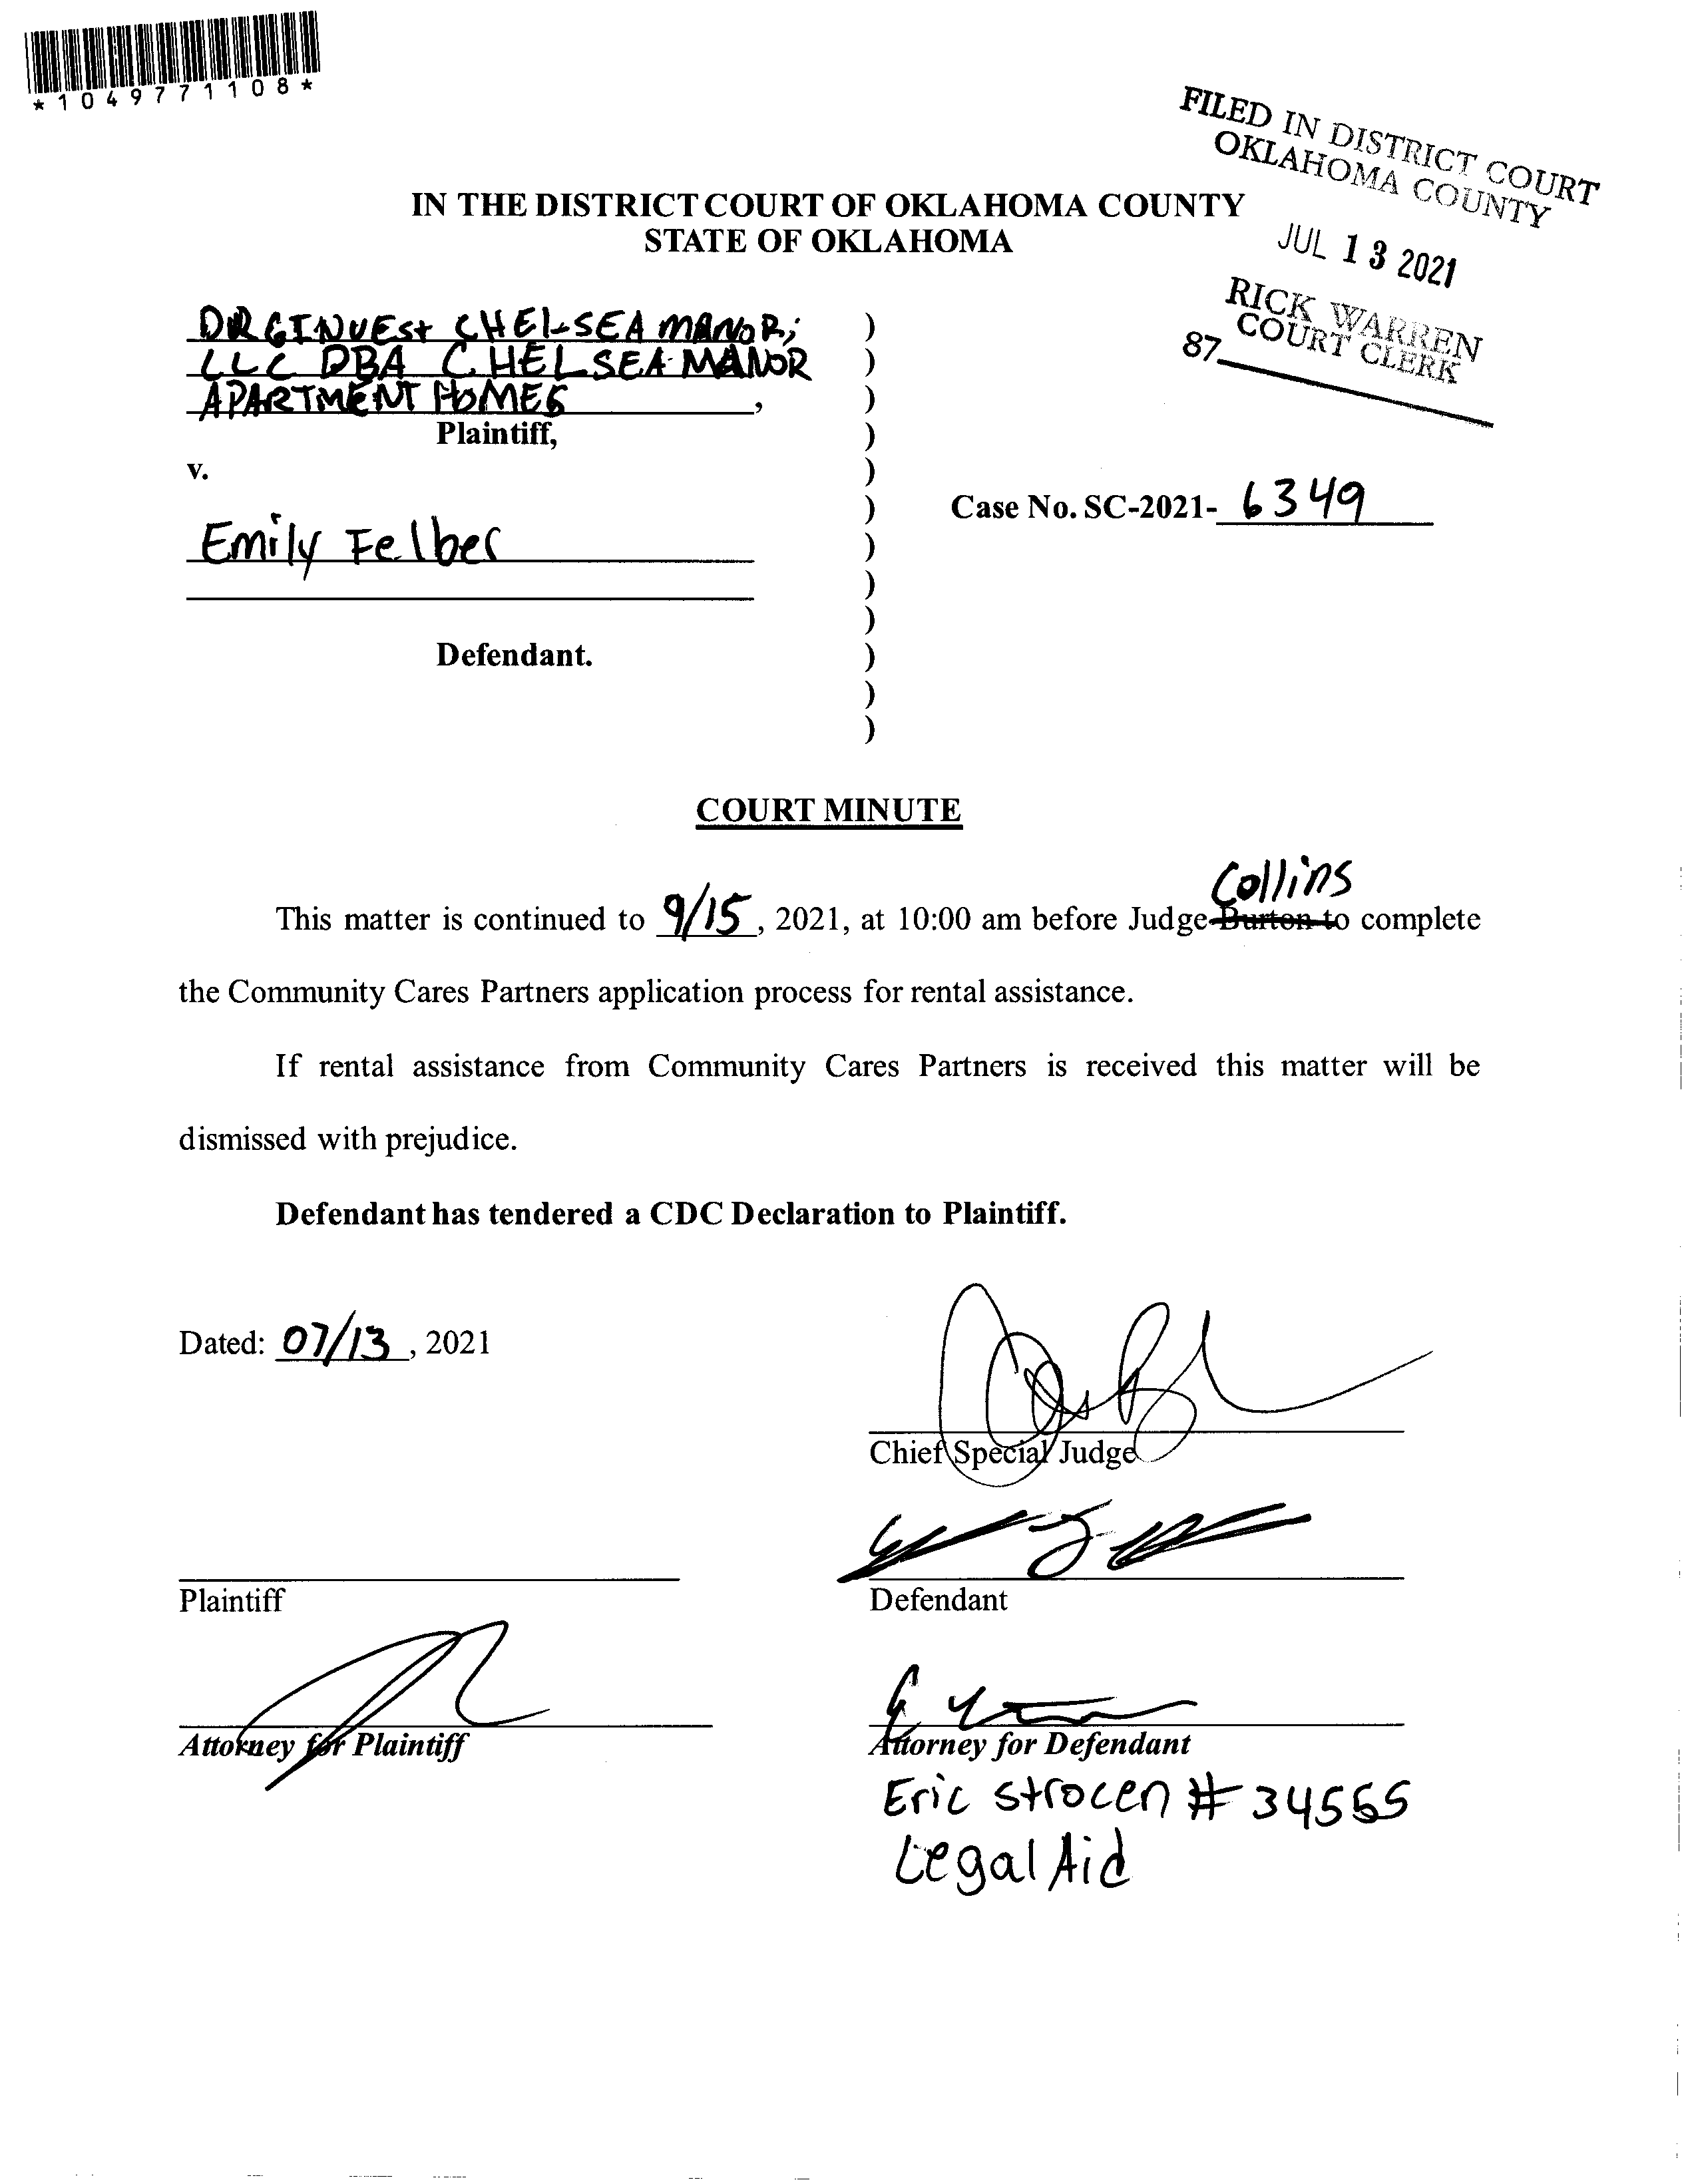 *1049771108*
FILED IN DISTRICT COURT
OKLAHOMA COUNTY
JUL 13 2021
RICK WARREN
COURT CLERK
87
IN THE DISTRICT COURT OF OKLAHOMA COUNTY
STATE OF OKLAHOMA
DRGINVEST CHELSEA MANOR,
LLC DBA CHELSEA MANOR
APARTMENT HOMES,
Plaintiff,
v.
Case No. SC-2021- 6349
Emily Felber
Defendant.
COURT MINUTE
Collins
This matter is continued to 9/15, 2021, at 10:00 am before Judge Burton to complete
the Community Cares Partners application process for rental assistance.
If rental assistance from Community Cares Partners is received this matter will be
dismissed with prejudice.
Defendant has tendered a CDC Declaration to Plaintiff.
Dated: 07/13, 2021
Chief Special Judge
Plaintiff
Defendant
Attorney for Plaintiff
Attorney for Defendant
Eric Strocen # 34555
Legal Aid